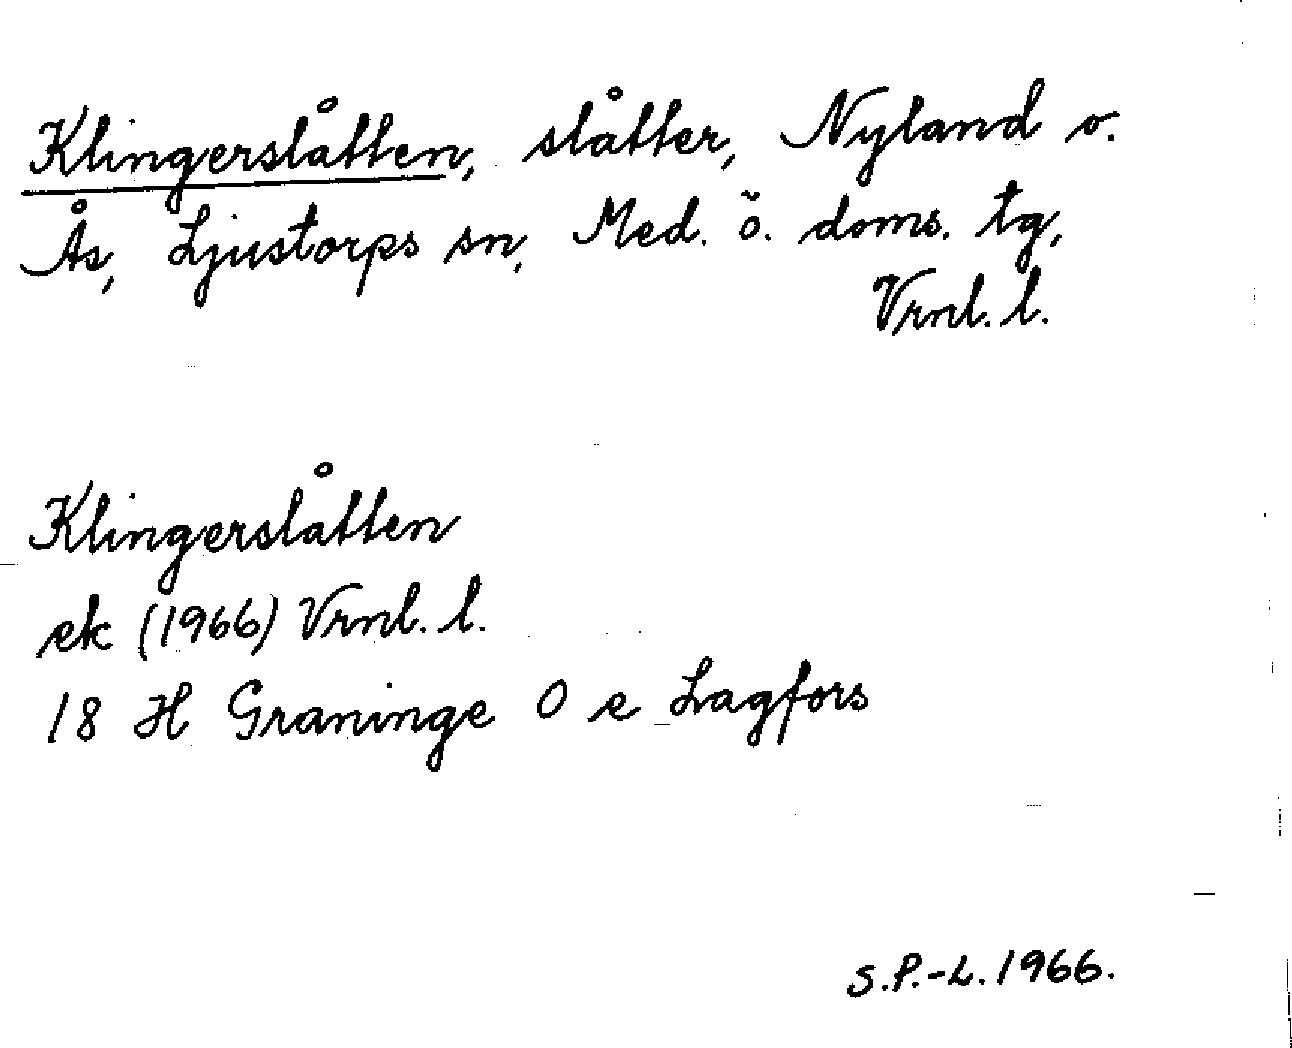 Klingerslåtten, slåtter, Nyland o.
Ås, Ljustorps sn, Med. ö. doms. tg,
Vrnl. l.
Klingerslåtten
ek (1966) Vrnl. l.
18 H Graninge O e Lagfors
S.P.-L. 1966.